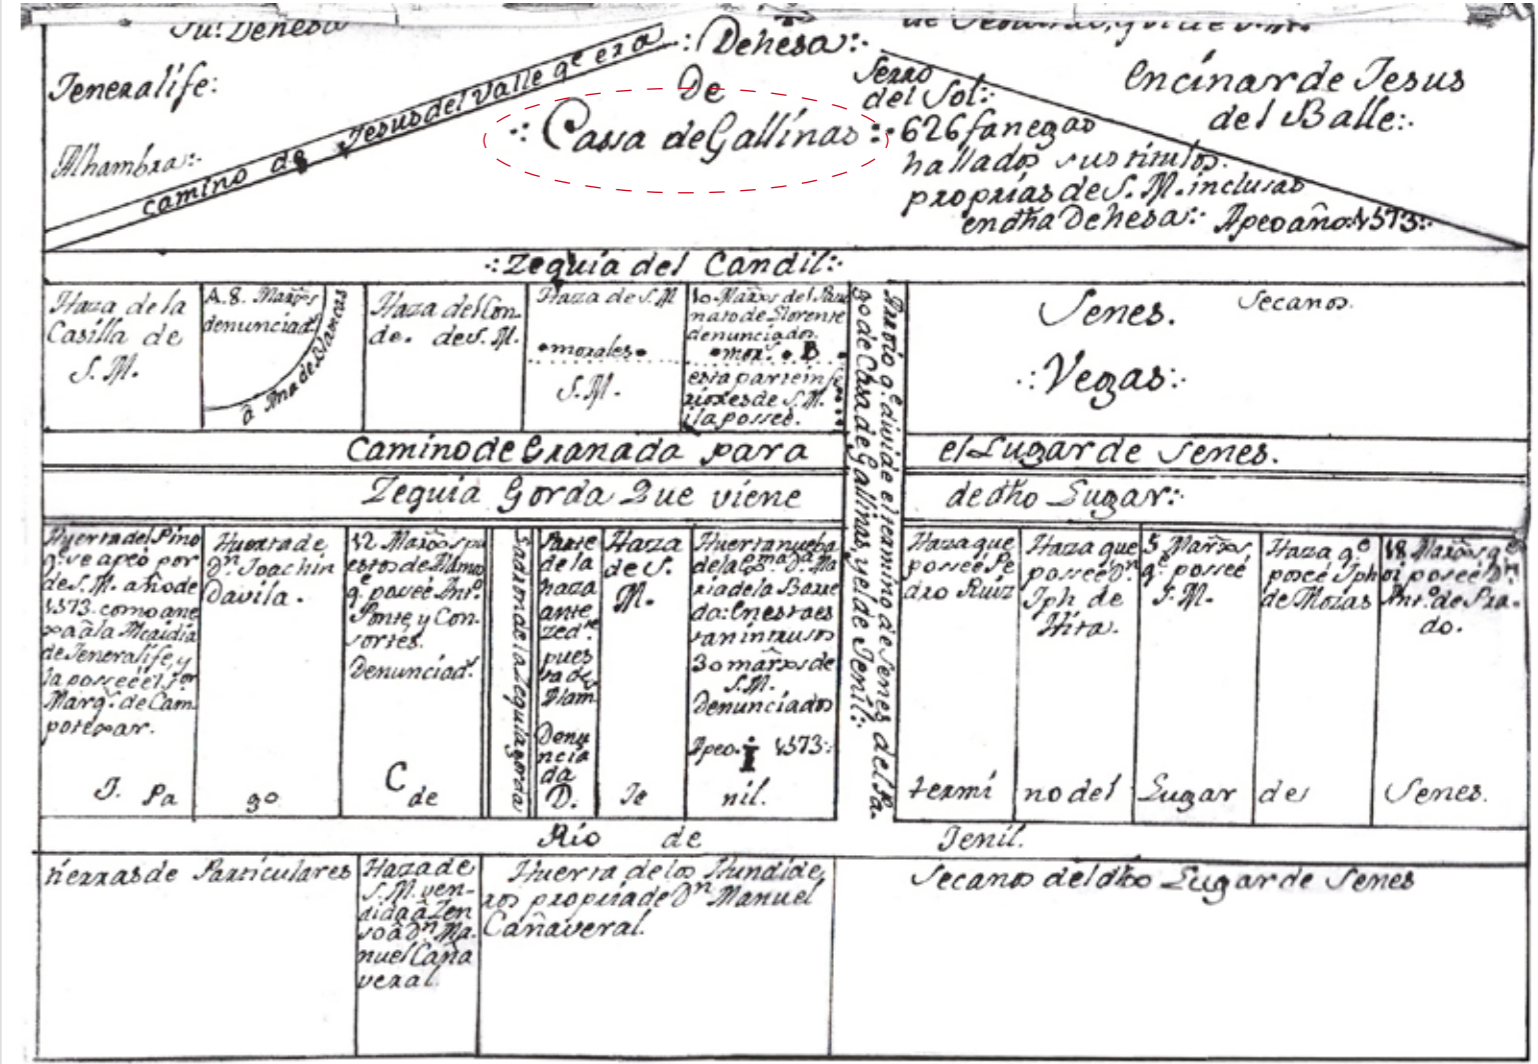 Su: Dehesa
Jeneralife:
Alhambra:.
camino de Jesus del Valle qe. era
.: Dehesa:.
De
.: Cassa de Gallinas:.
Serro
del Sol:.
626 fanegas
hallados sus titulos.
proprias de S. M. inclusas
en dha Dehesa:. Apeo año: 1573:.
Encinar de Jesus
del Balle:.
.: Zequia del Candil:.
Haza de la
Casilla de
S. M.
A. 8. Marxs
denunciads
â Ana de Damcas
Haza del Con
de. de S. M.
Haza de S. M
morales
S. M.
10. Marxs del Patro
nato de Llorente
denunciados.
morS. B
esta parte infe
rior es de S. M.
i la posseé.
Senes. Secanos.
.: Vegas:.
Camino de Granada para el Lugar de Senes.
Zequia Gorda Que viene de dho Lugar:.
go de Casa de Gallinas, yel de Jenil:.
que divide el termino de Senes del Pa.
Huerta del Pino
qe. se apeó por
de S. M. año de
1573. como ane
xa â la Alcaidia
de Jeneralife, y
la posseé el Sor
Marqs. de Cam
potexar.
Huerta de
Dn. Joachin
Davila.
12. Marxos pu
estos de Alamo
qe. posseé Anto.
Ponte y Con
sortes.
Denunciads
Ladron de la Zequia gorda
Parte
de la
haza
ante
zedte
pues
ta de
Alam
Denu
ncia
da
D.
Haza
de S.
M.
Huerta nueba
de la
ria de la Barre
da: En esta es
tan intrusos
30 marxs de
S. M.
Denunciados
Apeo. 1573:.
J. Pa go C de Je nil.
Haza que
posseé Pe
dro Ruiz
Haza que
posseé Dn
Jph de
Hita.
5 Marxs,
qe posseé
S. M.
Haza qe
poseé Jph
de Mozas
18 Marxs qe
oi poseé Dn
Anto. de Pra.
do.
termi no del Lugar de Senes.
Rio de Jenil.
tierras de Particulares
Haza de
S. M. ven-
dida â Zen
so â Dn. Ma.
nuel Caña
veral.
Huerta de los Hundide
ros propria de Dn. Manuel
Cañaveral.
Secanos del dho Lugar de Senes